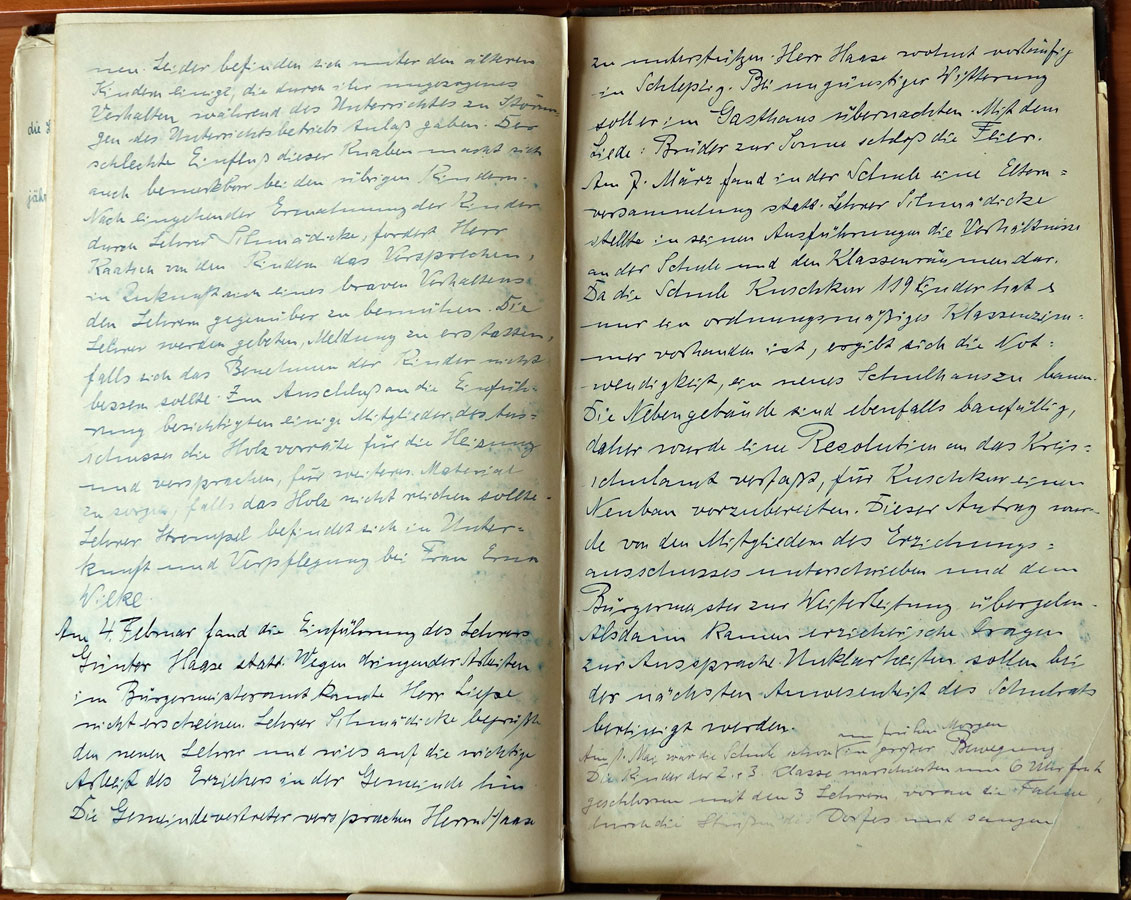 die
jähr
nen. Leider befinden sich unter den älteren
Kindern einige, die durch ihr ungezogenes
Verhalten während des Unterrichtes zu Störun-
gen des Unterrichtsbetriebs Anlaß gaben. Der
schlechte Einfluß dieser Knaben macht sich
auch bemerkbar bei den übrigen Kindern.
Nach eingehender Ermahnung der Kinder
durch Lehrer Schmädicke, fordert Herr
von den Kindern das Versprechen,
in Zukunft sich eines braven Verhaltens
den Lehrern gegenüber zu bemühen. Die
Lehrer werden gebeten, Meldung zu erstatten,
falls sich das Benehmen der Kinder nicht
bessern sollte. Im Anschluß an die Einfüh-
rung besichtigten einige Mitglieder des Aus-
schusses die Holzvorräte für die Heizung
und versprachen, für weiteres Material
zu sorgen, falls das Holz nicht reichen sollte.
Lehrer Strempel befindet sich in Unter-
kunft und Verpflegung bei Frau Erna
Wilke.
Am 4. Februar fand die Einführung des Lehrers
Günter Haase statt. Wegen dringender Arbeiten
im Bürgermeisteramt konnte Herr Liepe
nicht erscheinen. Lehrer Schmädicke begrüßte
den neuen Lehrer und wies auf die wichtige
Arbeit des Erziehers in der Gemeinde hin.
Die Gemeindevertreter versprachen Herrn Haase
zu unterstützen. Herr Haase wohnt vorläufig
in Schlepzig. Bei ungünstiger Witterung
soll er im Gasthaus übernachten. Mit dem
Liede: Brüder zur Sonne schloß die Feier.
Am 7. März fand in der Schule eine Eltern=
versammlung statt. Lehrer Schmädicke
stellte in seinen Ausführungen die Verhältnisse
an der Schule und den Klassenräumen dar.
Da die Schule Kuschkow 119 Kinder hat u
nur ein ordnungsmäßiges Klassenzim-
mer vorhanden ist, ergibt sich die Not=
wendigkeit, ein neues Schulhaus zu bauen.
Die Nebengebäude sind ebenfalls baufällig,
daher wurde eine Resolution an das Kreis=
schulamt verfaßt, für Kuschkow einen
Neubau vorzubereiten. Dieser Antrag wur-
de von den Mitgliedern des Erziehungs=
ausschusses unterschrieben und dem
Bürgermeister zur Weiterleitung übergeben.
Alsdann kamen erzieherische Fragen
zur Aussprache. Unklarheiten sollen bei
der nächsten Anwesenheit des Schulrats
bereinigt werden.
am frühen Morgen
Am 1. Mai war die Schule schon in großer Bewegung
Die Kinder der 2. + 3. Klasse marschierten um 6 Uhr früh
geschlossen mit den 3 Lehrern voran die Fahne,
durch die Straßen des Dorfes und sangen